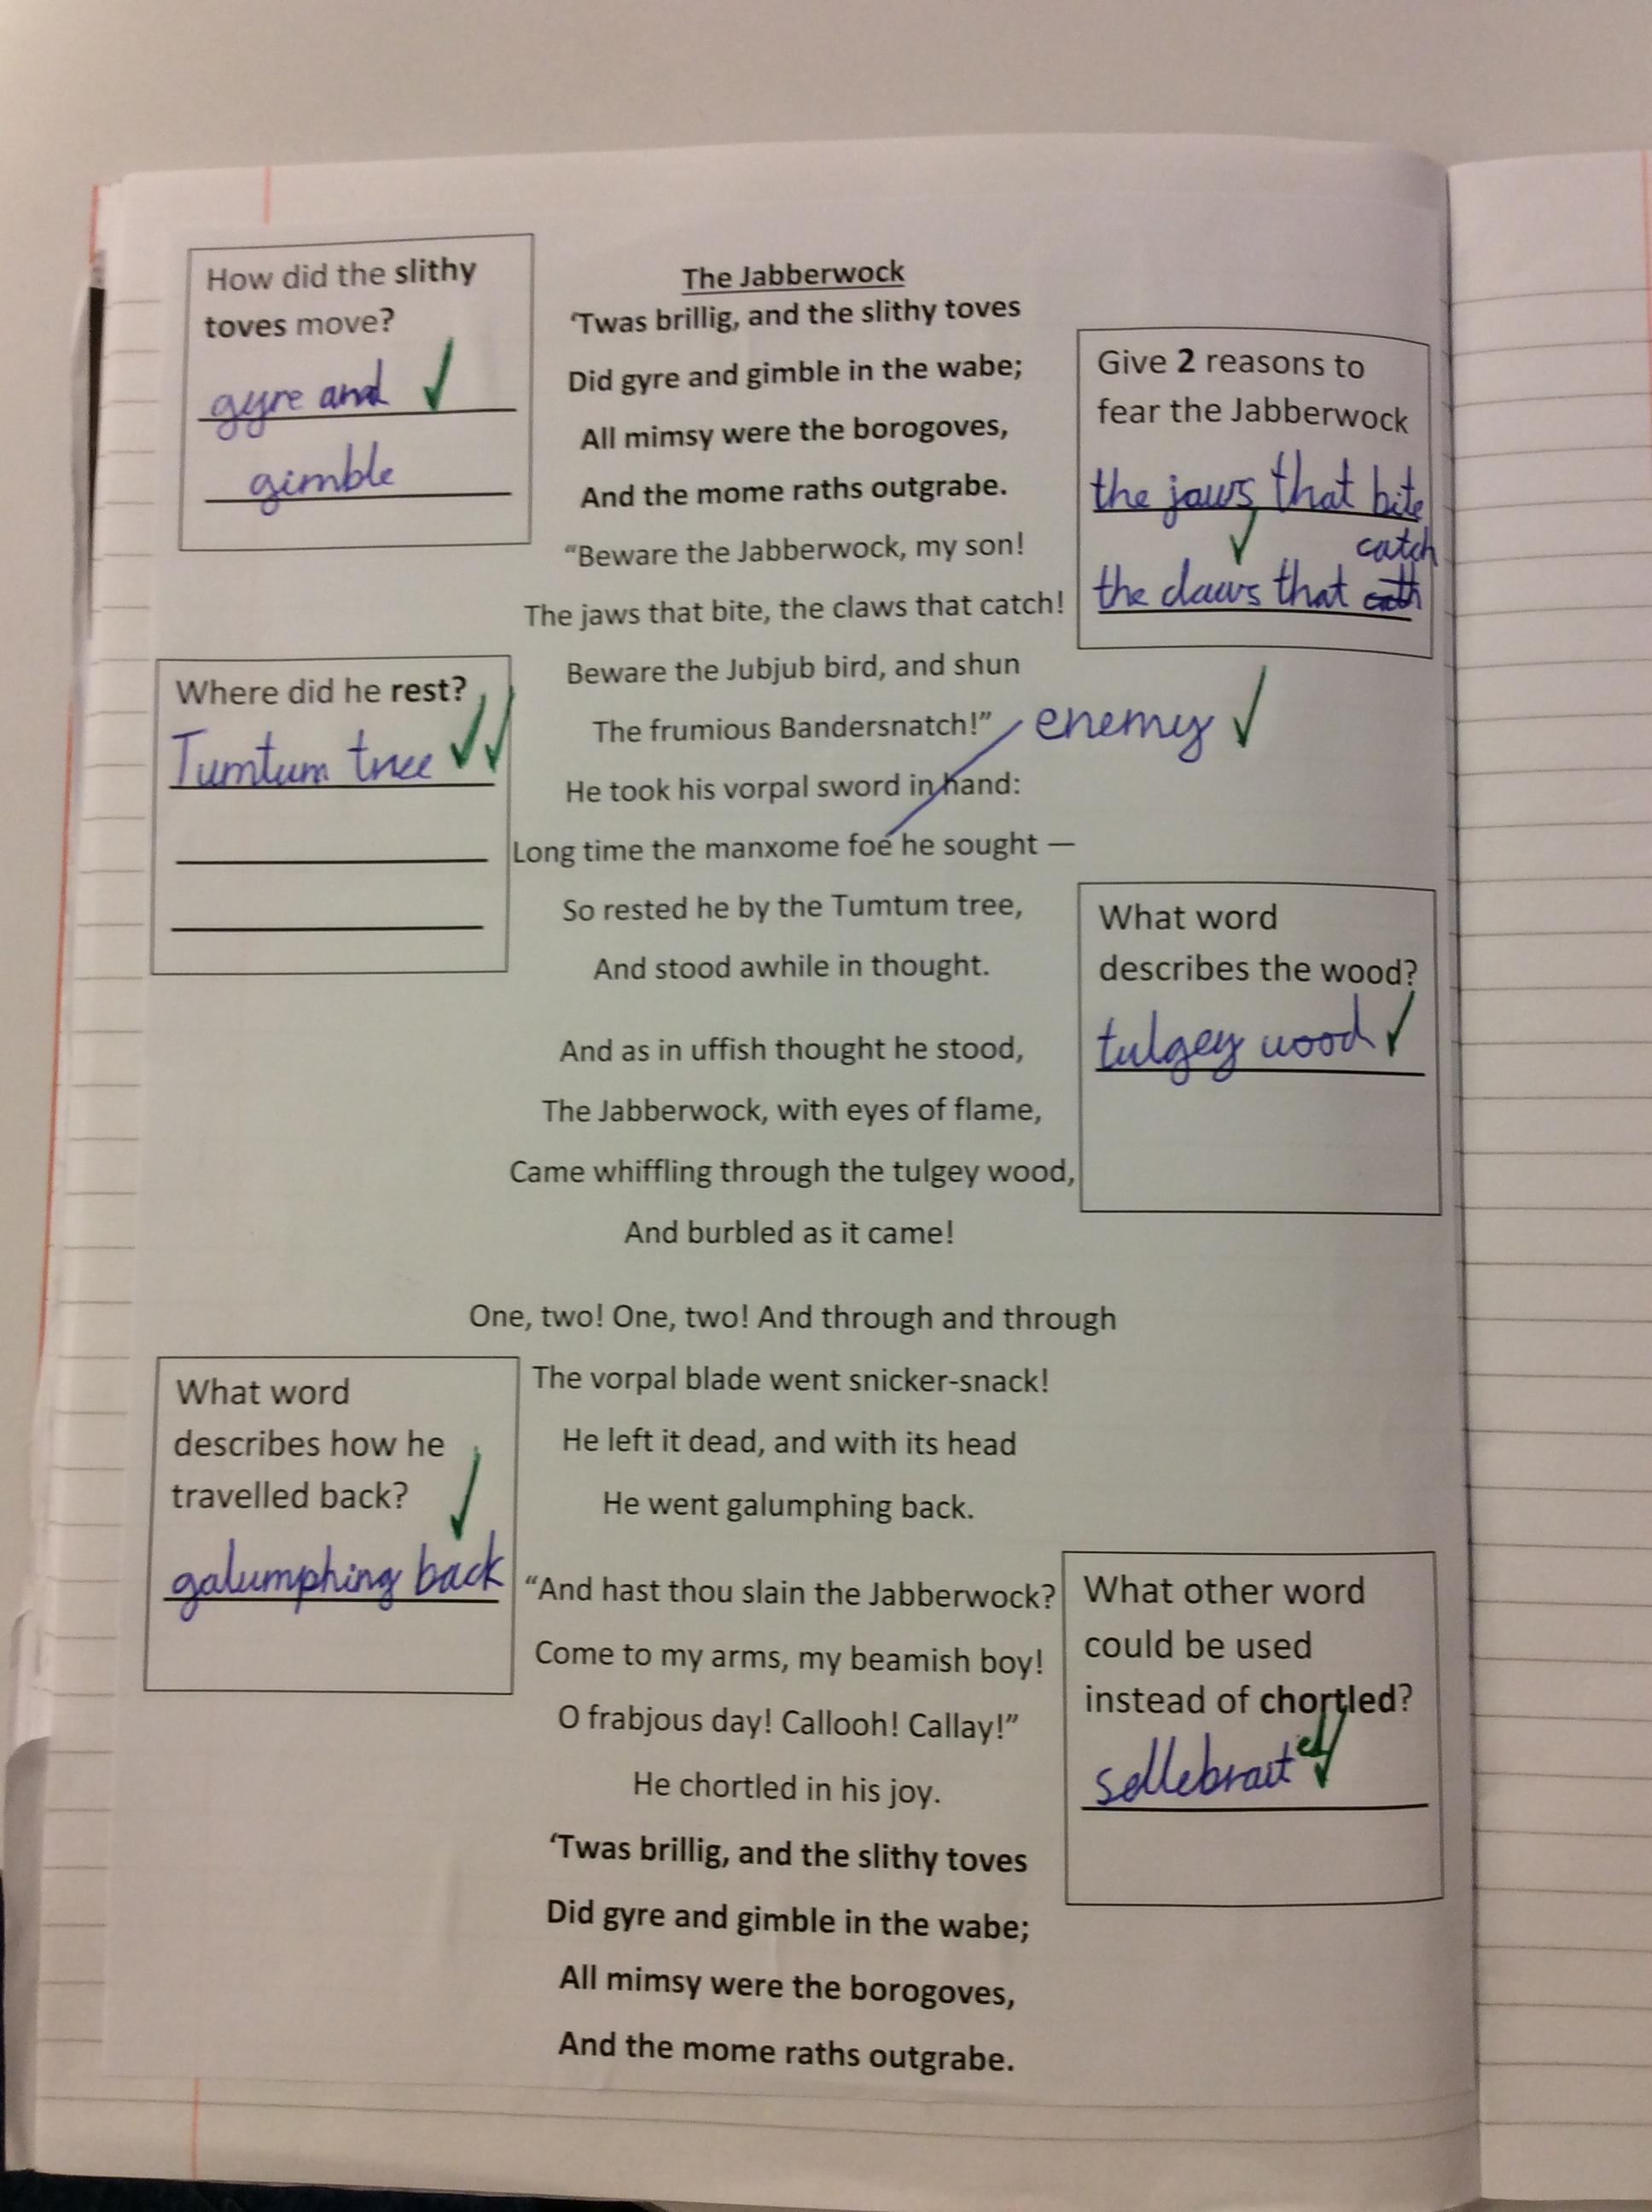 How did the slithy
toves move?
gyre and
gimble
The Jabberwock
‘Twas brillig, and the slithy toves
Did gyre and gimble in the wabe;
All mimsy were the borogoves,
And the mome raths outgrabe.
“Beware the Jabberwock, my son!
The jaws that bite, the claws that catch!
Beware the Jubjub bird, and shun
The frumious Bandersnatch!”
enemy
He took his vorpal sword in hand:
Long time the manxome foe he sought —
So rested he by the Tumtum tree,
And stood awhile in thought.
Give 2 reasons to
fear the Jabberwock
the jaws that bite
catch
the claws that
Where did he rest?
Tumtum tree
And as in uffish thought he stood,
The Jabberwock, with eyes of flame,
Came whiffling through the tulgey wood,
And burbled as it came!
What word
describes the wood?
tulgey wood
One, two! One, two! And through and through
The vorpal blade went snicker-snack!
He left it dead, and with its head
He went galumphing back.
What word
describes how he
travelled back?
galumphing back
“And hast thou slain the Jabberwock?
Come to my arms, my beamish boy!
O frabjous day! Callooh! Callay!”
He chortled in his joy.
What other word
could be used
instead of chortled?
sellebrated
‘Twas brillig, and the slithy toves
Did gyre and gimble in the wabe;
All mimsy were the borogoves,
And the mome raths outgrabe.